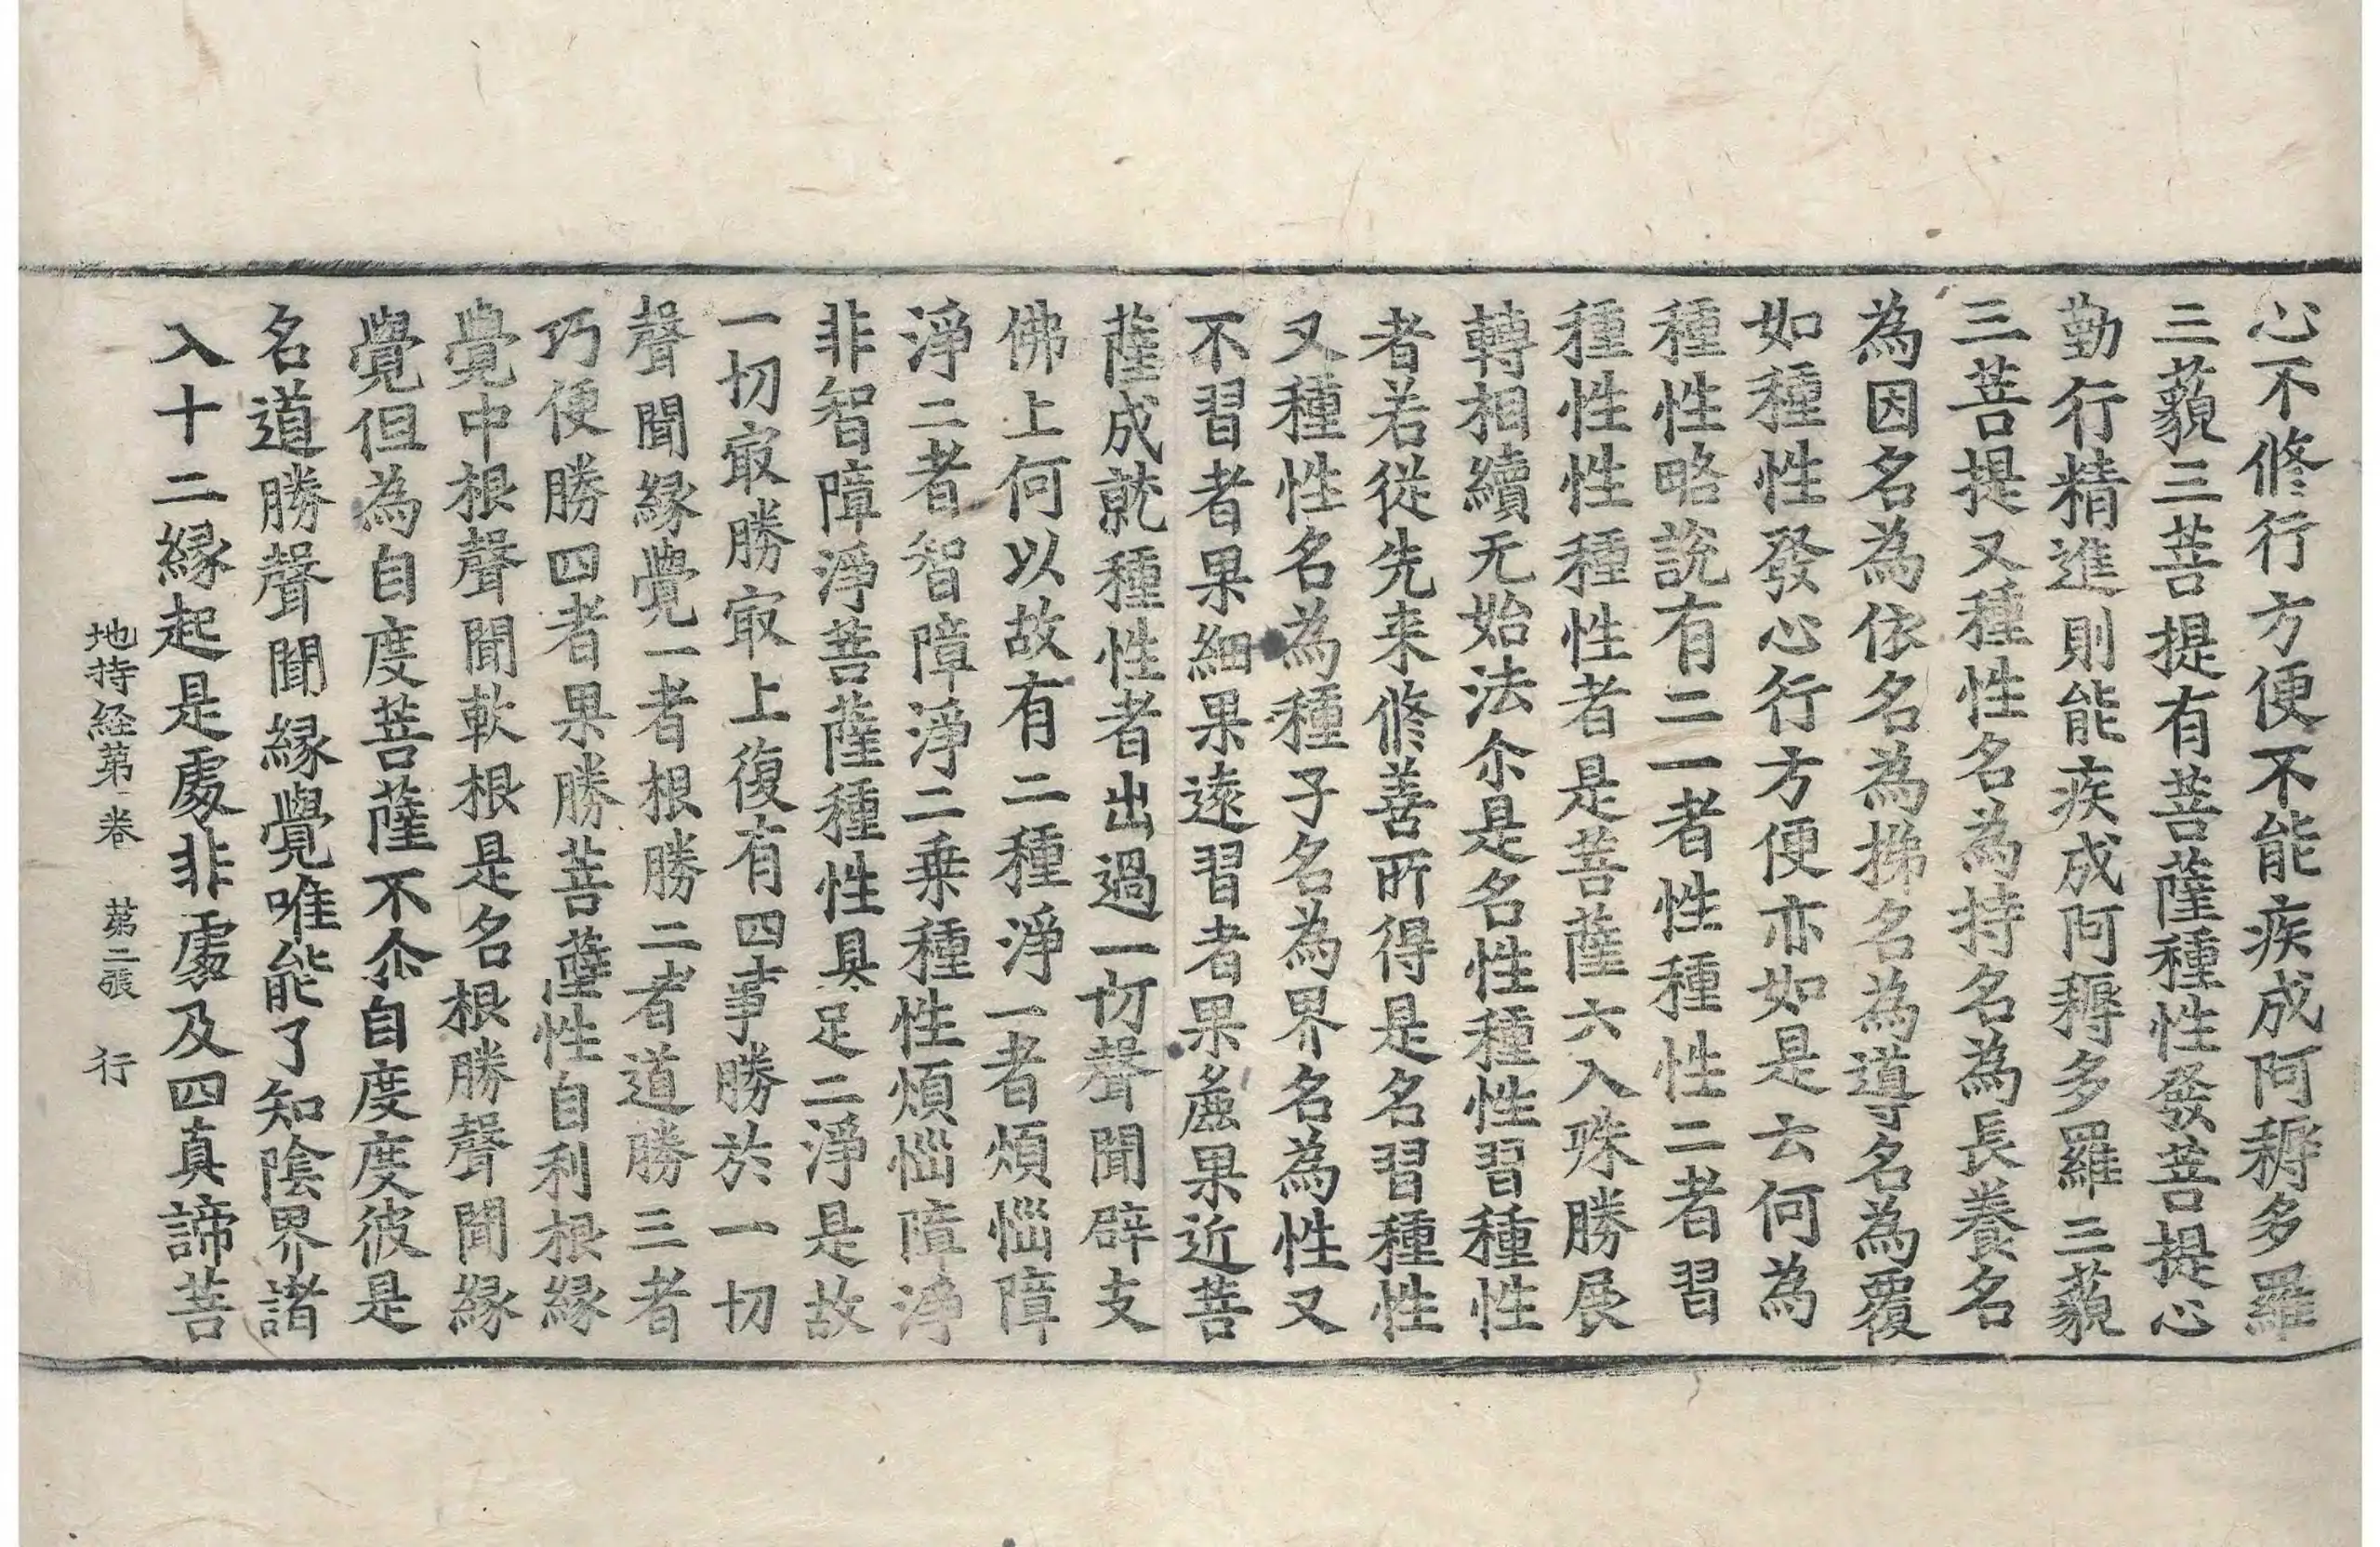 心不修行方便不能疾成阿耨多羅
三藐三菩提有菩薩種性發菩提心
勤行精進則能疾成阿耨多羅三藐
三菩提又種性名為持名為長養名
為因名為依名為梯名為導名為覆
如種性發心行方便亦如是云何為
種性略說有二一者性種性二者習
種性性種性者是菩薩六入殊勝展
轉相續无始法尒是名性種性習種性
者若從先来修善所得是名習種性
又種性名為種子名為界名為性又
不習者果細果遠習者果麁果近菩
薩成就種性者出過一切聲聞辟支
佛上何以故有二種淨一者煩惱障
淨二者智障淨二乗種性煩惱障淨
非智障淨菩薩種性具足二淨是故
一切㝡勝㝡上復有四事勝於一切
聲聞縁覺一者根勝二者道勝三者
巧便勝四者果勝菩薩性自利根縁
覺中根聲聞軟根是名根勝聲聞縁
覺但為自度菩薩不尒自度度彼是
名道勝聲聞縁覺唯能了知陰界諸
入十二縁起是處非處及四真諦菩
地持経第一卷 第二張 行